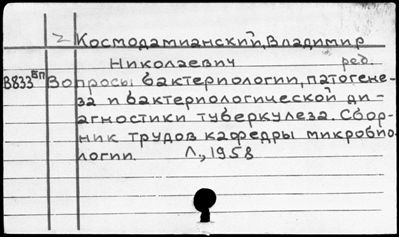 2 Космодамианский, Владимир
Николаевич ред.
В833БП Вопросы бактериологии, патогене-
за и бактериологической ди-
агностики туберкулеза. Сбор-
ник трудов кафедры микробио-
логии. Л., 1958